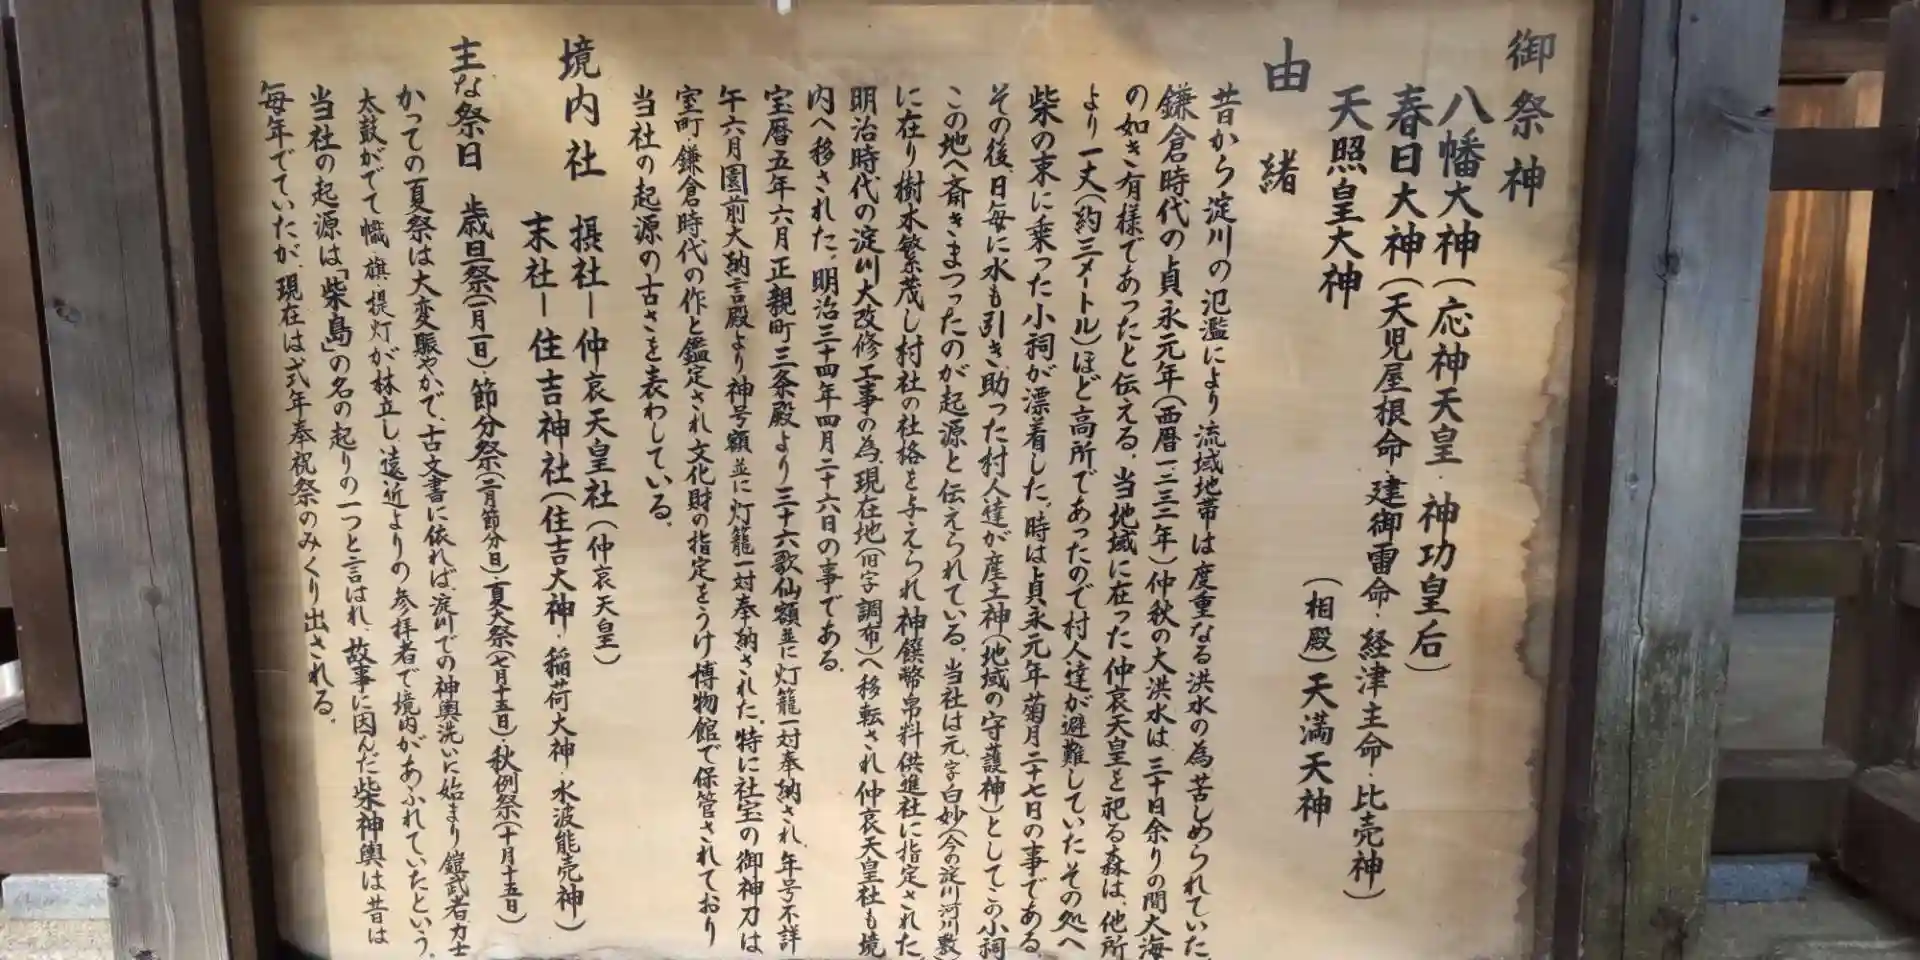 御祭神
八幡大神(応神天皇・神功皇后)
春日大神(天児屋根命・建御雷命・経津主命・比売神)
天照皇大神
(相殿)天満天神
由緒
昔から淀川の氾濫により流域地帯は度重なる洪水の為苦しめられていた。
鎌倉時代の貞永元年(西暦一二三二年)仲秋の大洪水は、三十日余りの間大海
の如き有様であったと伝える。当地域に在った仲哀天皇を祀る森は、他所
より一丈(約三メートル)ほど高所であったので村人達が避難していたその処へ
柴の束に乗った小祠が漂着した。時は貞永元年菊月二十七日の事である。
その後、日毎に水も引き助った村人達が産土神(地域の守護神)としてこの小祠
この地へ斎きまつったのが起源と伝えられている。当社は元、字白妙(今の淀川河川敷)
に在り樹木繁茂し村社の社格を与えられ神饌幣帛料供進社に指定された。
明治時代の淀川大改修工事の為、現在地(旧字調布)へ移転され仲哀天皇社も境
内へ移された。明治三十四年四月二十六日の事である。
宝暦五年六月正親町三条殿より三十六歌仙額並に灯籠一対奉納され、年号不詳
午六月園前大納言殿より神号額並に灯籠一対奉納された。特に社宝の御神刀は
室町鎌倉時代の作と鑑定され文化財の指定をうけ博物館で保管されており
当社の起源の古さを表わしている。
境内社
摂社ー仲哀天皇社(仲哀天皇)
末社ー住吉神社(住吉大神・稲荷大神・水波能売神)
主な祭日 歳旦祭(一月一日)・節分祭(二月節分日)・夏大祭(七月十五日)秋例祭(十月十五日)
かっての夏祭は大変賑やかで、古文書に依れば、淀川での神輿洗いに始まり鎧武者力士
太鼓がでて幟・旗・提灯が林立し、遠近よりの参拝者で境内があふれていたという。
当社の起源は「柴島」の名の起りの一つと言はれ、故事に因んだ柴神輿は昔は
毎年でていたが、現在は式年奉祝祭のみくり出される。